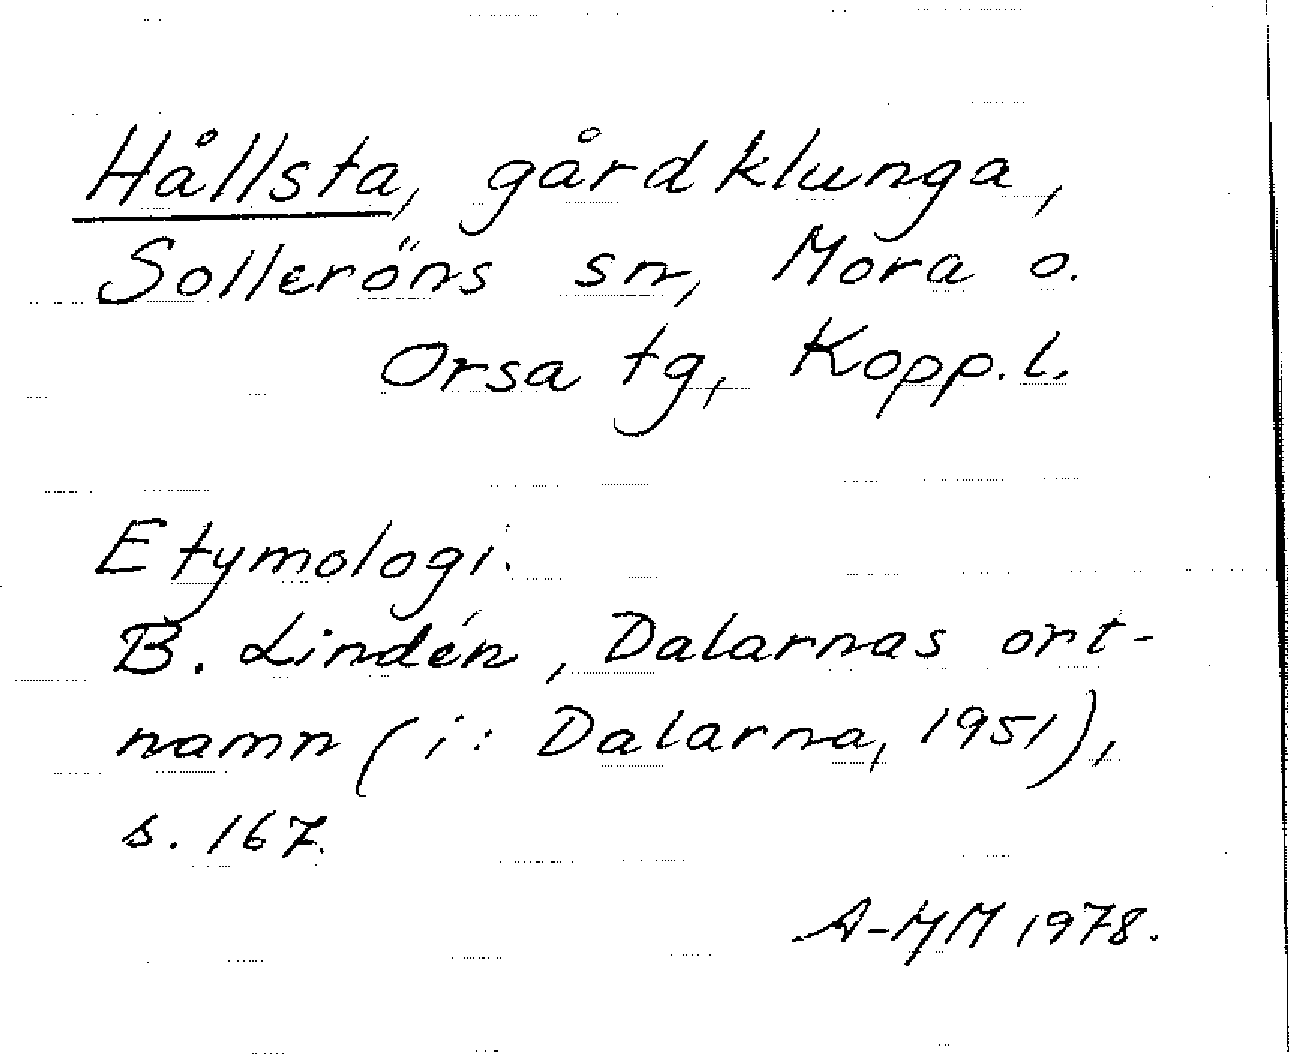 Hållsta, gårdklunga,
Solleröns sn, Mora o.
Orsa tg, Kopp.l.
Etymologi.
B. Lindén, Dalarnas ort-
namn (i: Dalarna, 1951),
s. 167.
A-MM 1978.